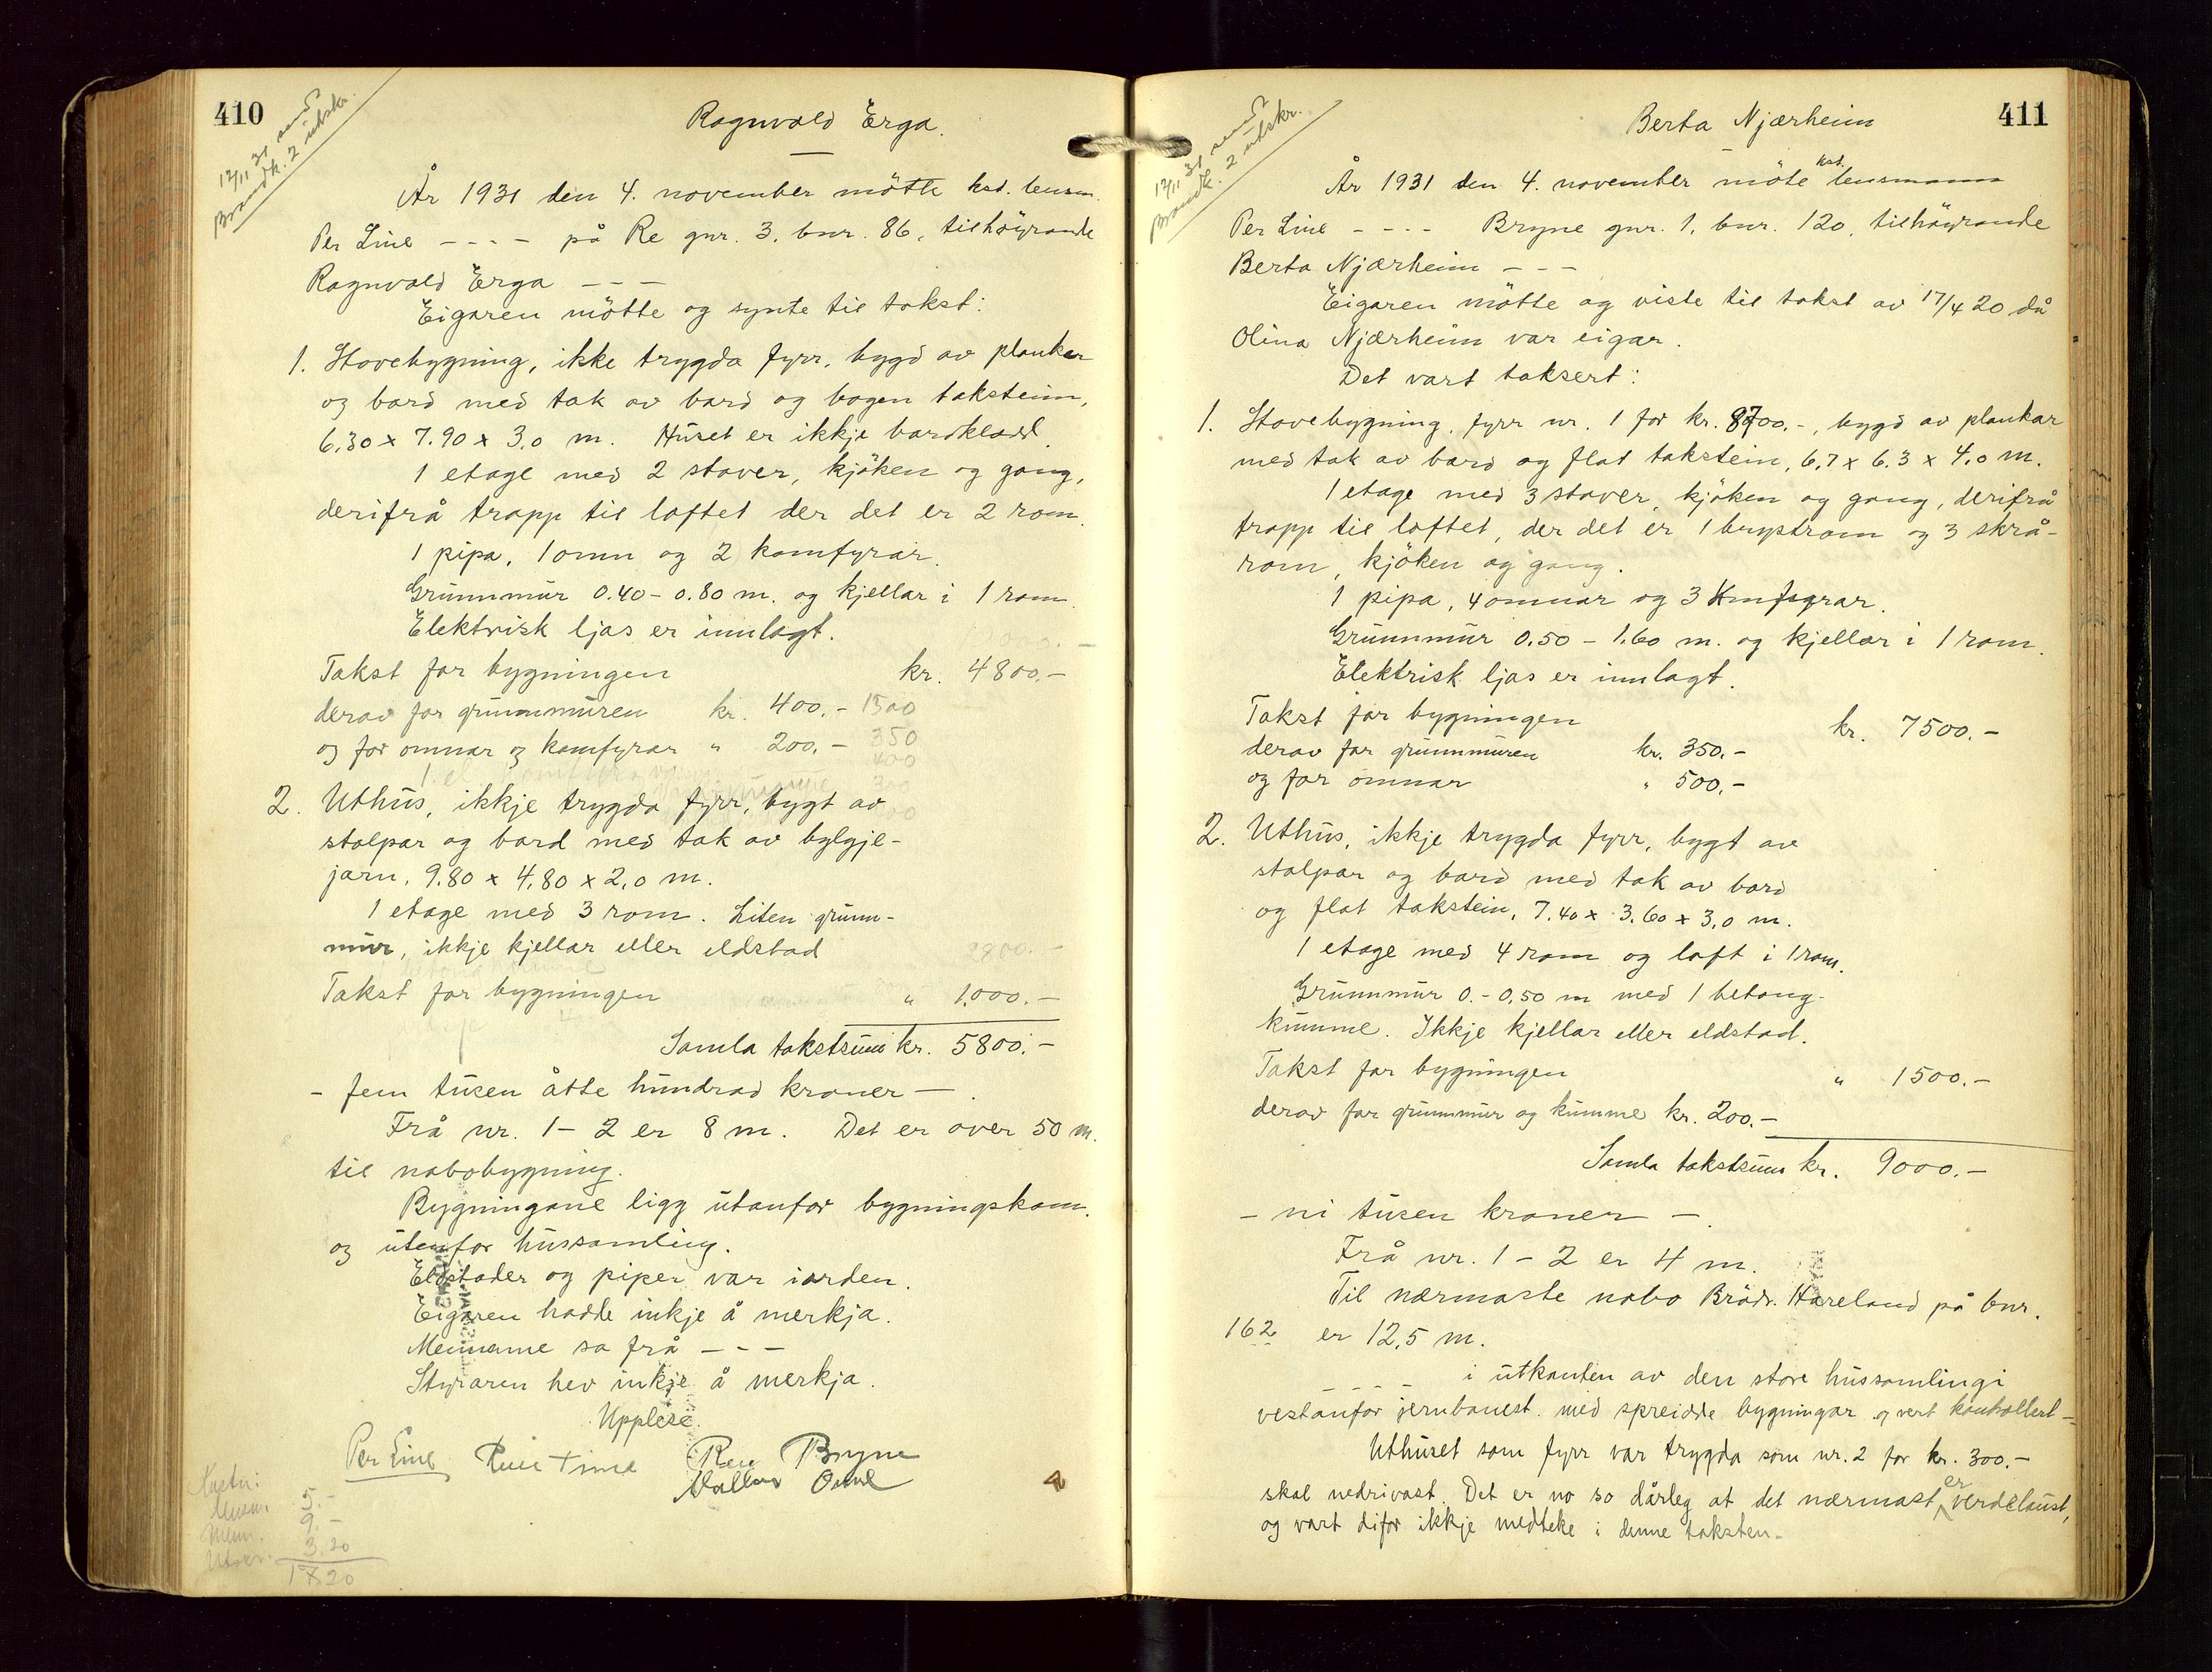 410
12/11 31 send
Brandk. 2 utskr.
Ragnvald Erga.
År 1931 den 4. november mötte kst. lensm.
Per Line - - - - på Re gnr. 3, bnr. 86, tilhöyrande
Ragnvald Erga - - -
Eigaren mötte og synte til takst:
1. Stovebygning, ikke trygda fyrr, bygd av plankar
og bord med tak av bord og bogen takstein,
6,30 x 7.90 x 3,0 m. Huset er ikkje bordklædd.
1 etage med 2 stover, kjöken og gang,
derifrå trapp til loftet der det er 2 rom.
1 pipa, 1 omn og 2 komfyrar.
Grunnmur 0.40 - 0.80 m. og kjellar i 1 rom.
Elektrisk ljos er innlagt.
Takst for bygningen kr. 4800.-
derav for grunnmuren kr. 400.- 1500
og for omnar og komfyrar " 200.- 350
400
300
2. Uthus, ikkje trygda fyrr, bygt av
stolpar og bord med tak av bylgje-
jarn, 9.80 x 4.80 x 2,0 m.
1 etage med 3 rom. Liten grunn-
mur, ikkje kjellar eller eldstad
2800.-
Takst for bygningen " 1.000.-
Samla takstsum kr. 5800.-
- fem tusen åtte hundrad kroner -.
Frå nr. 1 - 2 er 8 m. Det er over 50 m.
til nabobygning.
Bygningane ligg utanfor bygningskom.
og utenfor hussamling.
Eldstader og piper var iorden.
Eigaren hadde inkje å merkja.
Mennene sa frå - - -
Styraren hev inkje å merkja.
Upplese.
Per Line Time Bryne
5.-
9.-
3.20
17.20
411
12/11 31 send
Brandk. 2 utskr.
Berta Njærheim
År 1931 den 4. november möte kst. lensmann
Per Line - - - - Bryne gnr. 1, bnr. 120, tilhöyrande
Berta Njærheim - - -
Eigaren mötte og viste til takst av 17/4 20 då
Olina Njærheim var eigar.
Det vart taksert:
1. Stovebygning, fyrr nr. 1 for kr. 8700.-, bygd av plankar
med tak av bord og flat takstein, 6,7 x 6.3 x 4,0 m.
1 etage med 3 stover, kjöken og gang, derifrå
trapp til loftet, der det er 1 brystrom og 3 skrå-
rom, kjöken og gang.
1 pipa, 4 omnar og 3 komfyrar.
Grunnmur 0.50 - 1.60 m. og kjellar i 1 rom.
Elektrisk ljos er innlagt.
Takst for bygningen kr. 7500.-
derav for grunnmuren kr. 350.-
og for omnar " 500.-
2. Uthus, ikkje trygda fyrr, bygt av
stolpar og bord med tak av bord
og flat takstein, 7.40 x 3.60 x 3,0 m.
1 etage med 4 rom og loft i 1 rom.
Grunnmur 0.- 0,50 m med 1 betong-
kumme. Ikkje kjellar eller eldstad.
Takst for bygningen " 1500.-
derav for grunnmur og kumme kr. 200.-
Samla takstsum kr. 9000.-
- ni tusen kroner -.
Frå nr. 1 - 2 er 4 m.
Til nærmaste nabo Brödr. Håreland på bnr.
162 er 12,5 m.
- - - - i utkanten av den store hussamling i
vestanfor jernbanest. med spreidde bygningar og vert kontrollert -
Uthuset som fyrr var trygda som nr. 2 for kr. 300.-
skal nedrivast. Det er no so dårleg at det nærmast er verdelaust,
og vart difor ikkje medteke i denne taksten.-